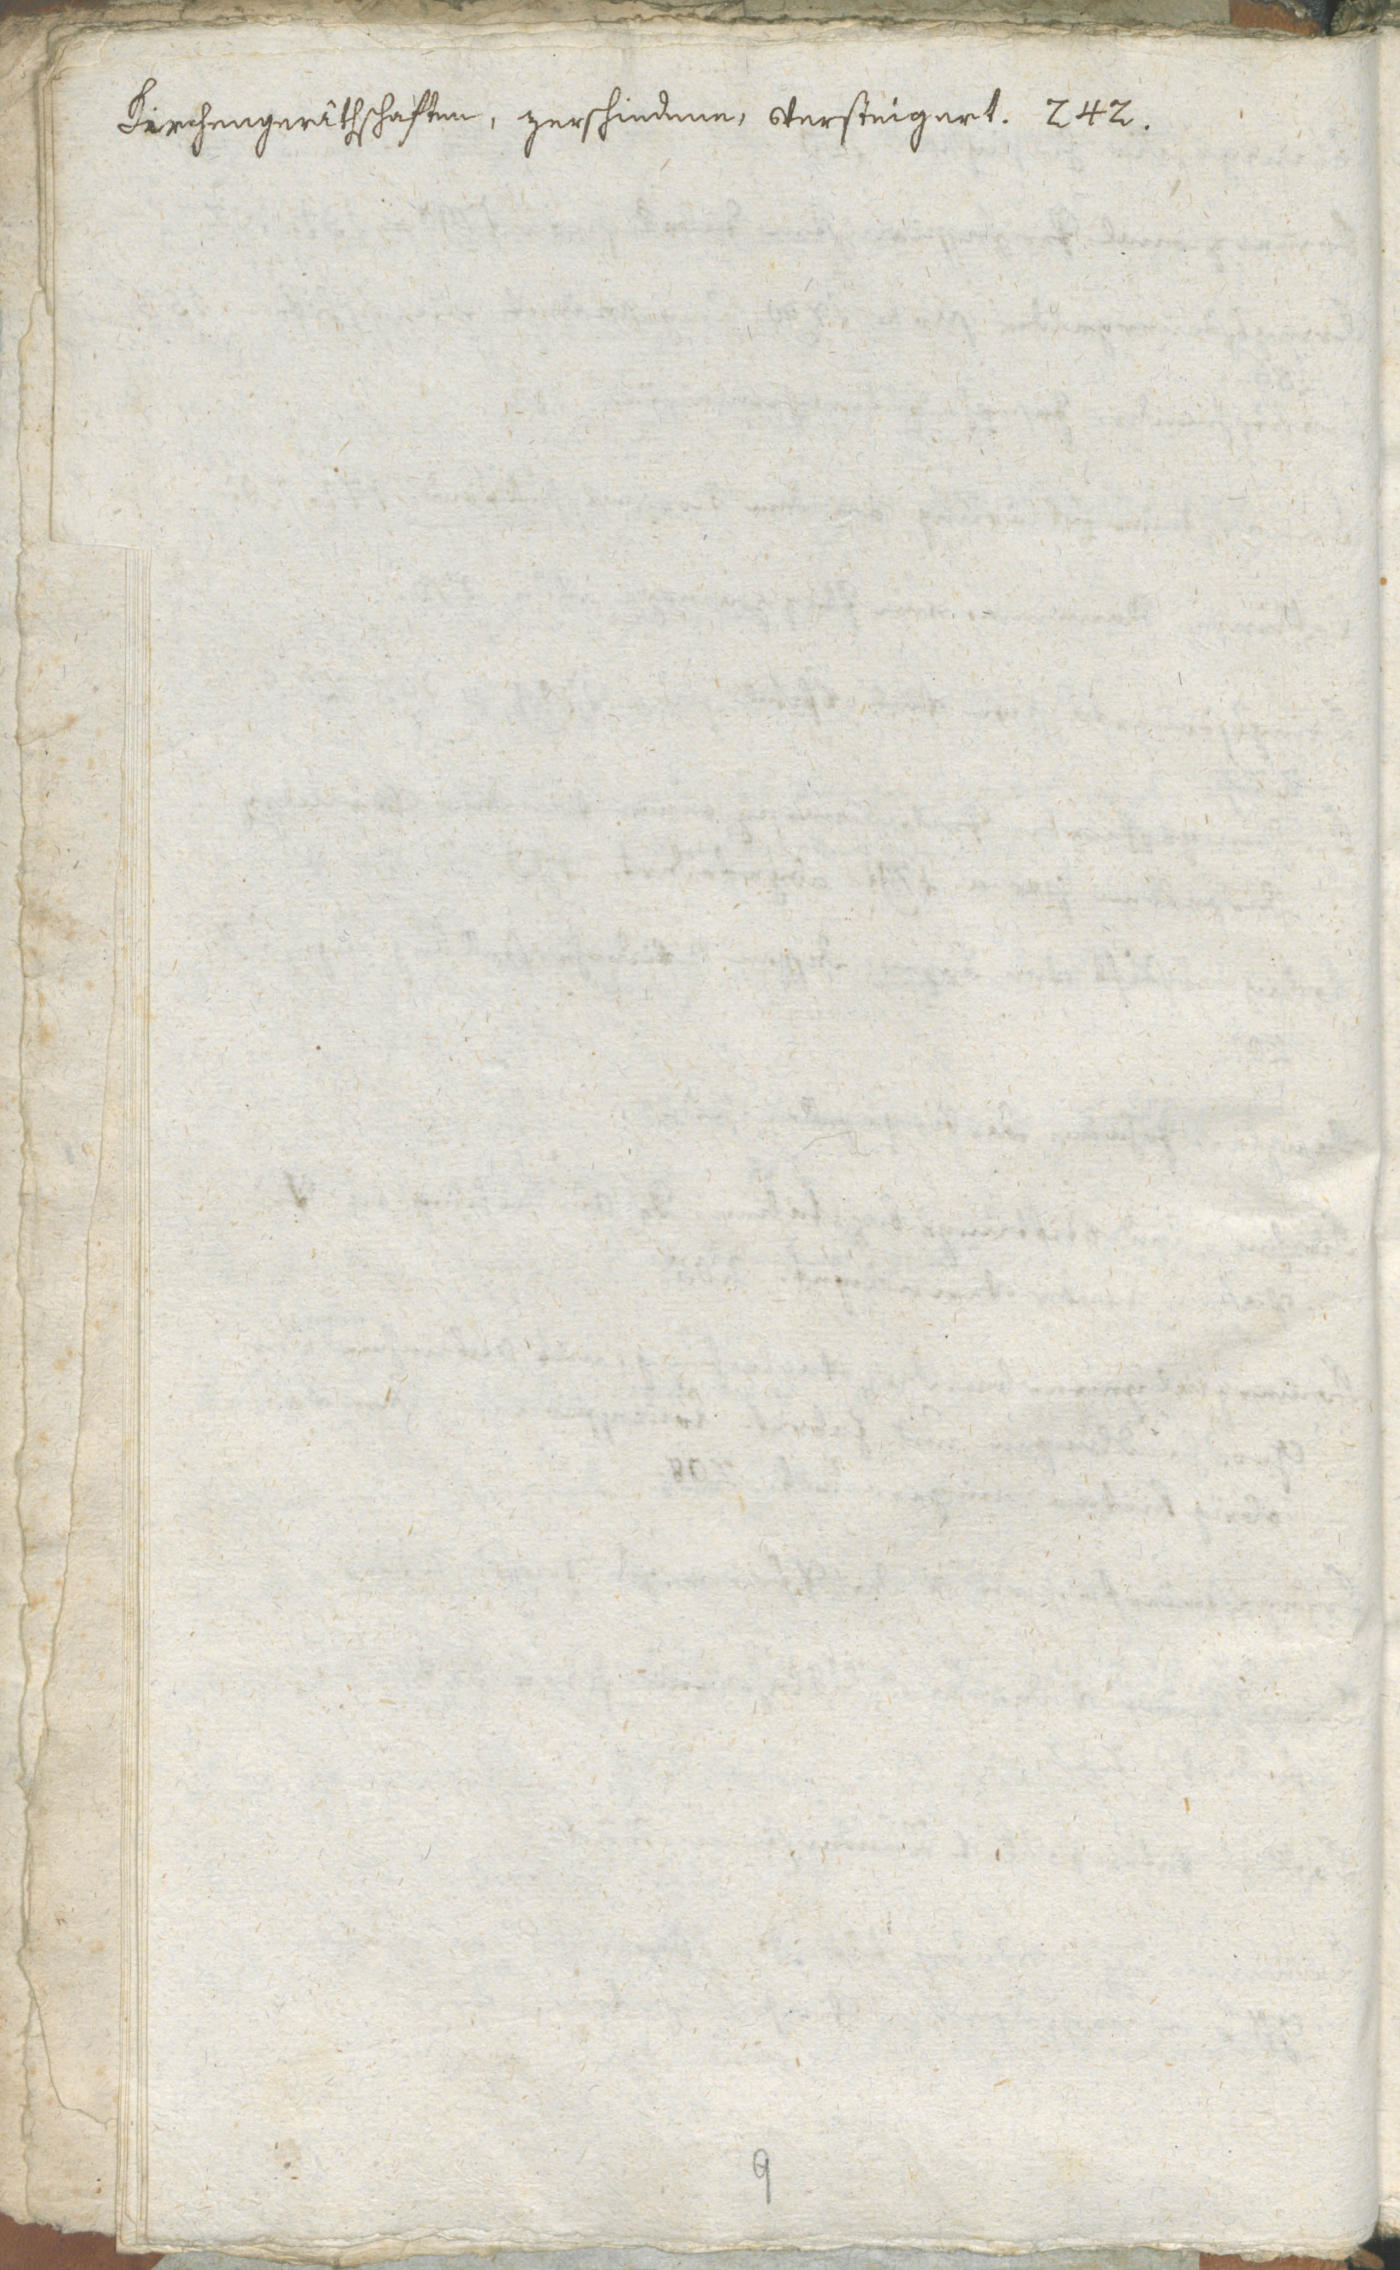 Kirchengeräthschaften, verschiedene, versteigert. 242.
9